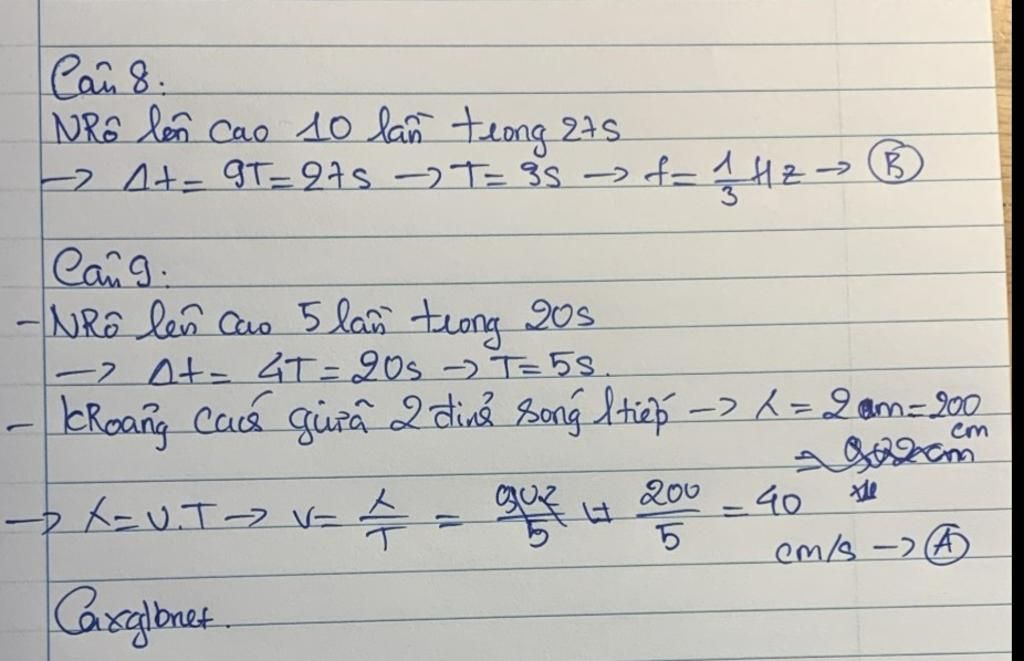 Câu 8:
Nhô lên cao 10 lần trong 27s
→ Δt = 9T = 27s → T = 3s → f = 1/3 Hz → B
Câu 9:
- Nhô lên cao 5 lần trong 20s
→ Δt = 4T = 20s → T = 5s.
- khoảng cách giữa 2 đỉnh sóng ltiếp → λ = 2m = 200 cm
→ λ = v.T → v = λ/T = 200/5 = 40
cm/s → A